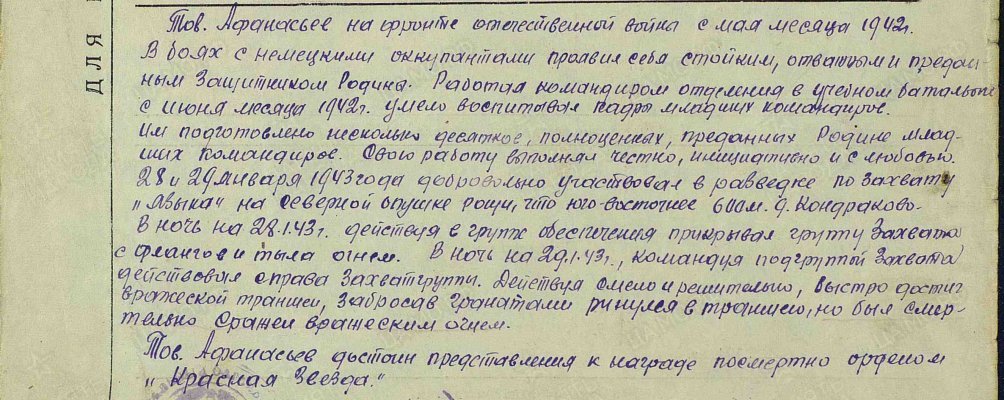 ДЛЯ
Тов. Афанасьев на фронте отечественной войны с мая месяца 1942г.
В боях с немецкими оккупантами проявил себя стойким, отважным и предан-
ным защитником Родины. Работая командиром отделения в учебном батальоне
с июня месяца 1942г. умело воспитывал кадры младших командиров.
Им подготовлено несколько десятков, полноценных, преданных Родине млад-
ших командиров. Свою работу выполнял честно, инициативно и с любовью.
28 и 29 января 1943 года добровольно участвовал в разведке по захвату
"Языка" на северной опушке рощи, что юго-восточнее 600м. д. Кондраково.
В ночь на 28.1.43г. действуя в группе обеспечения прикрывал группу захвата
с флангов и тыла огнем. В ночь на 29.1.43г., командуя подгруппой захвата
действовал справа захватгруппы. Действуя смело и решительно, быстро достиг
вражеской траншеи, забросав гранатами ринулся в траншею, но был смер-
тельно сражен вражеским огнем.
Тов. Афанасьев достоин представления к награде посмертно орденом
"Красная Звезда."